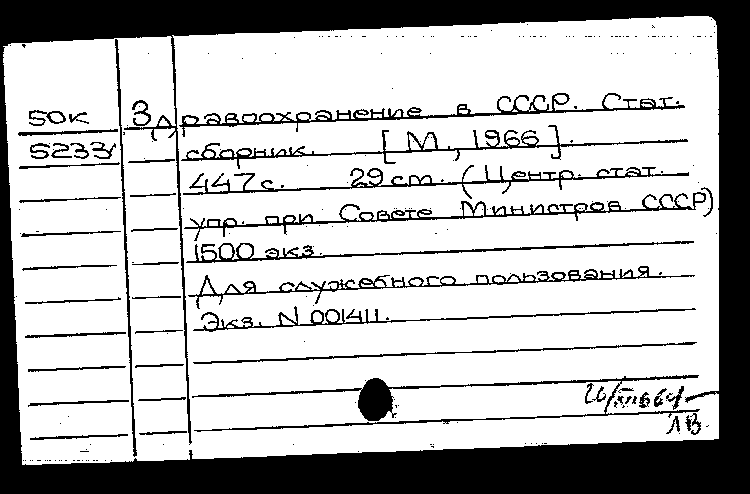 50к Здравоохранение в СССР. Стат.
5233 сборник. [М., 1966].
447с. 29 cm. (Центр. стат.
упр. при Совете Министров СССР)
1500 экз.
Для служебного пользования.
Экз. N 001411.
ЛВ